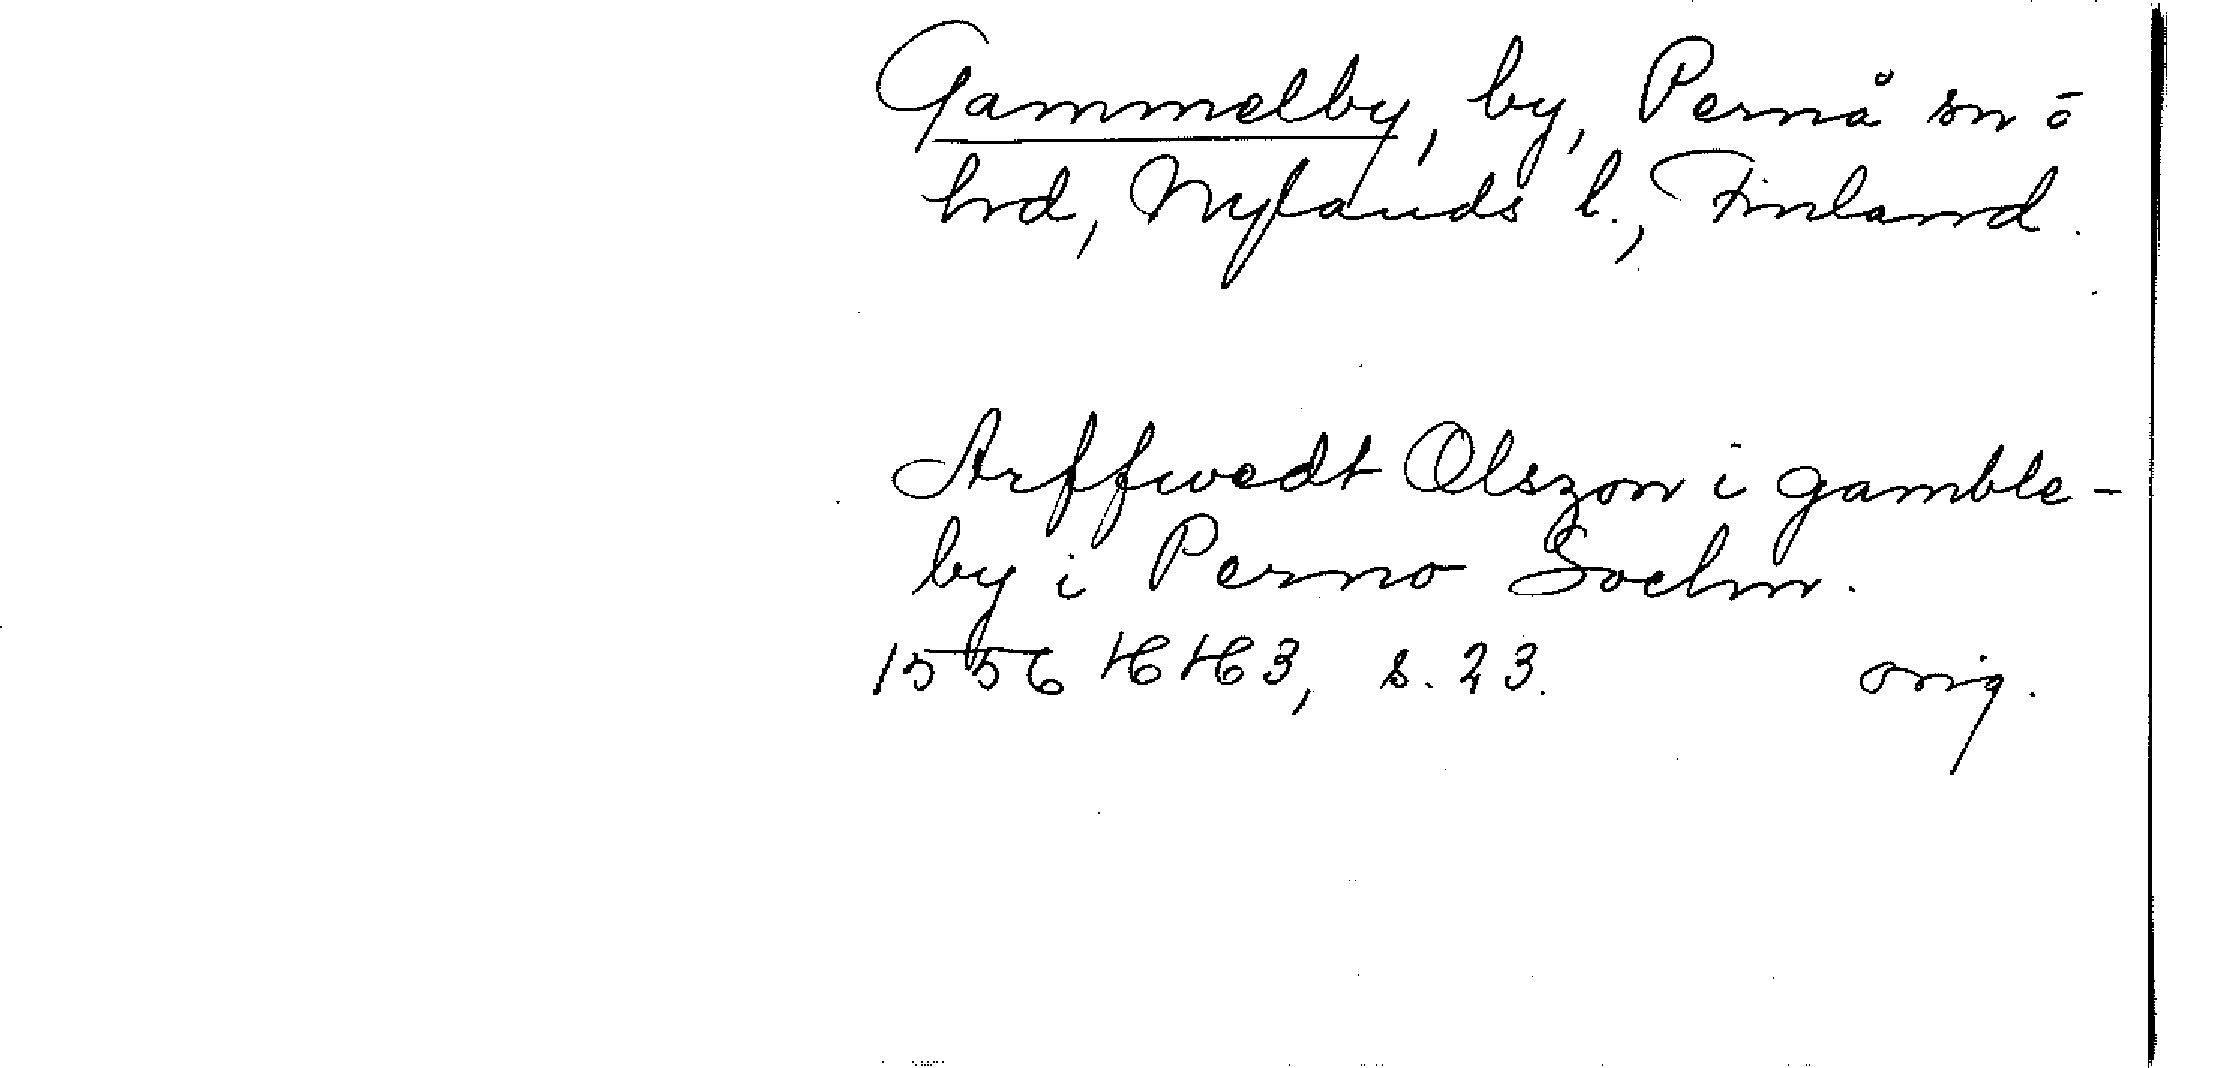 Gammelby, by, Pernå sn o
hrd, Nylands l., Finland.
Arffwedt Olszon i gamble-
by i Perno Sochn.
1556 HH3, s. 23. orig.